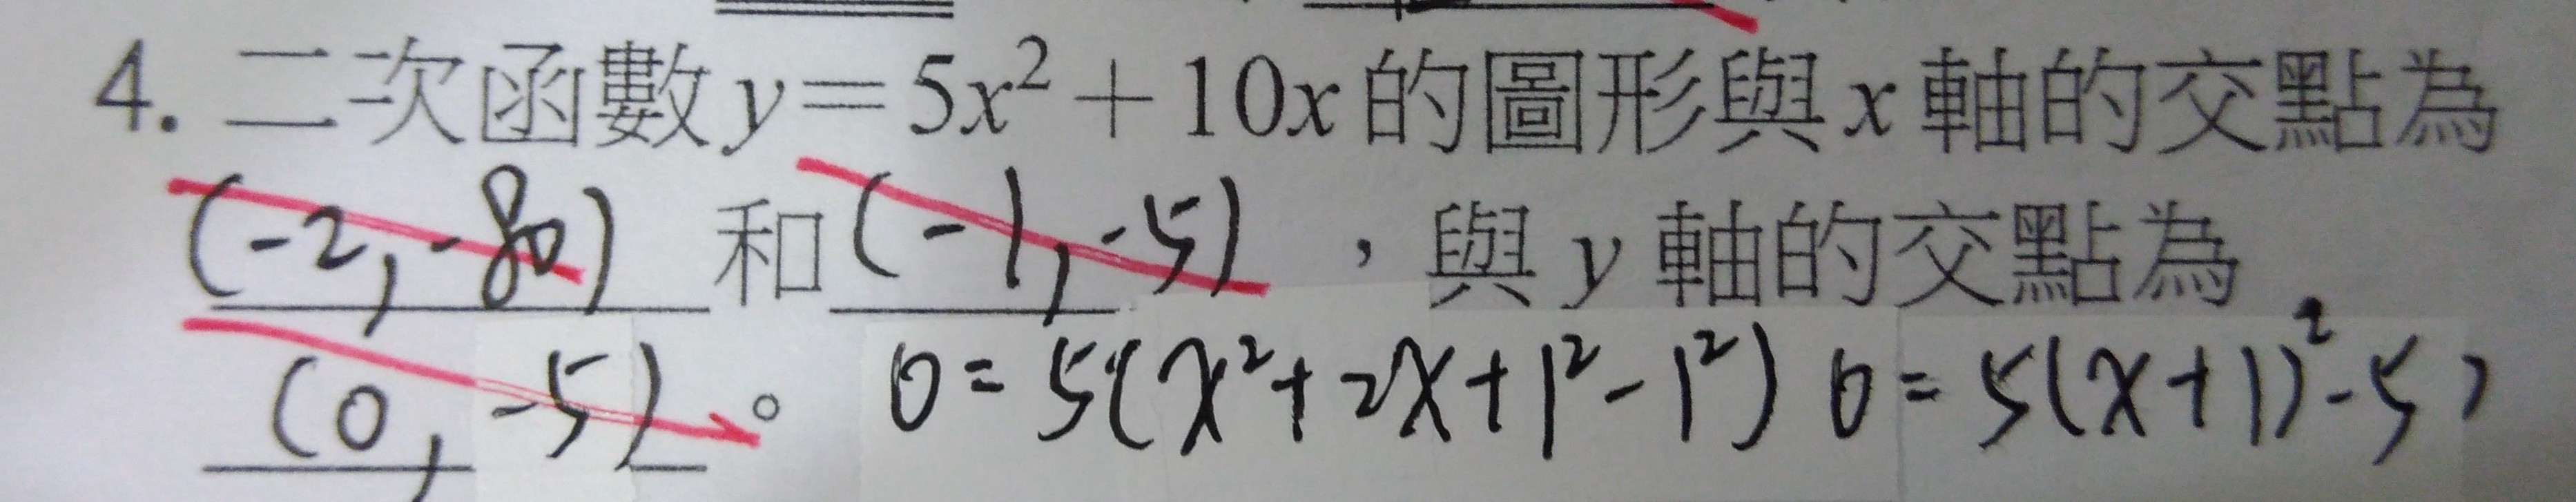 4. 二次函數 y＝5x²＋10x 的圖形與 x 軸的交點為
(-2, -80) 和 (-1, -5) ，與 y 軸的交點為
(0, -5) 。 0 = 5(x²+2x+1²-1²) 0 = 5(x+1)²-5)